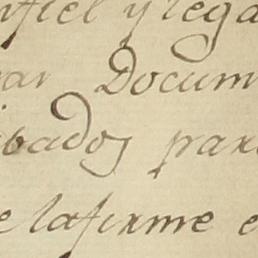 fiel y lega
ar Docum
ibados para
e lafirme e